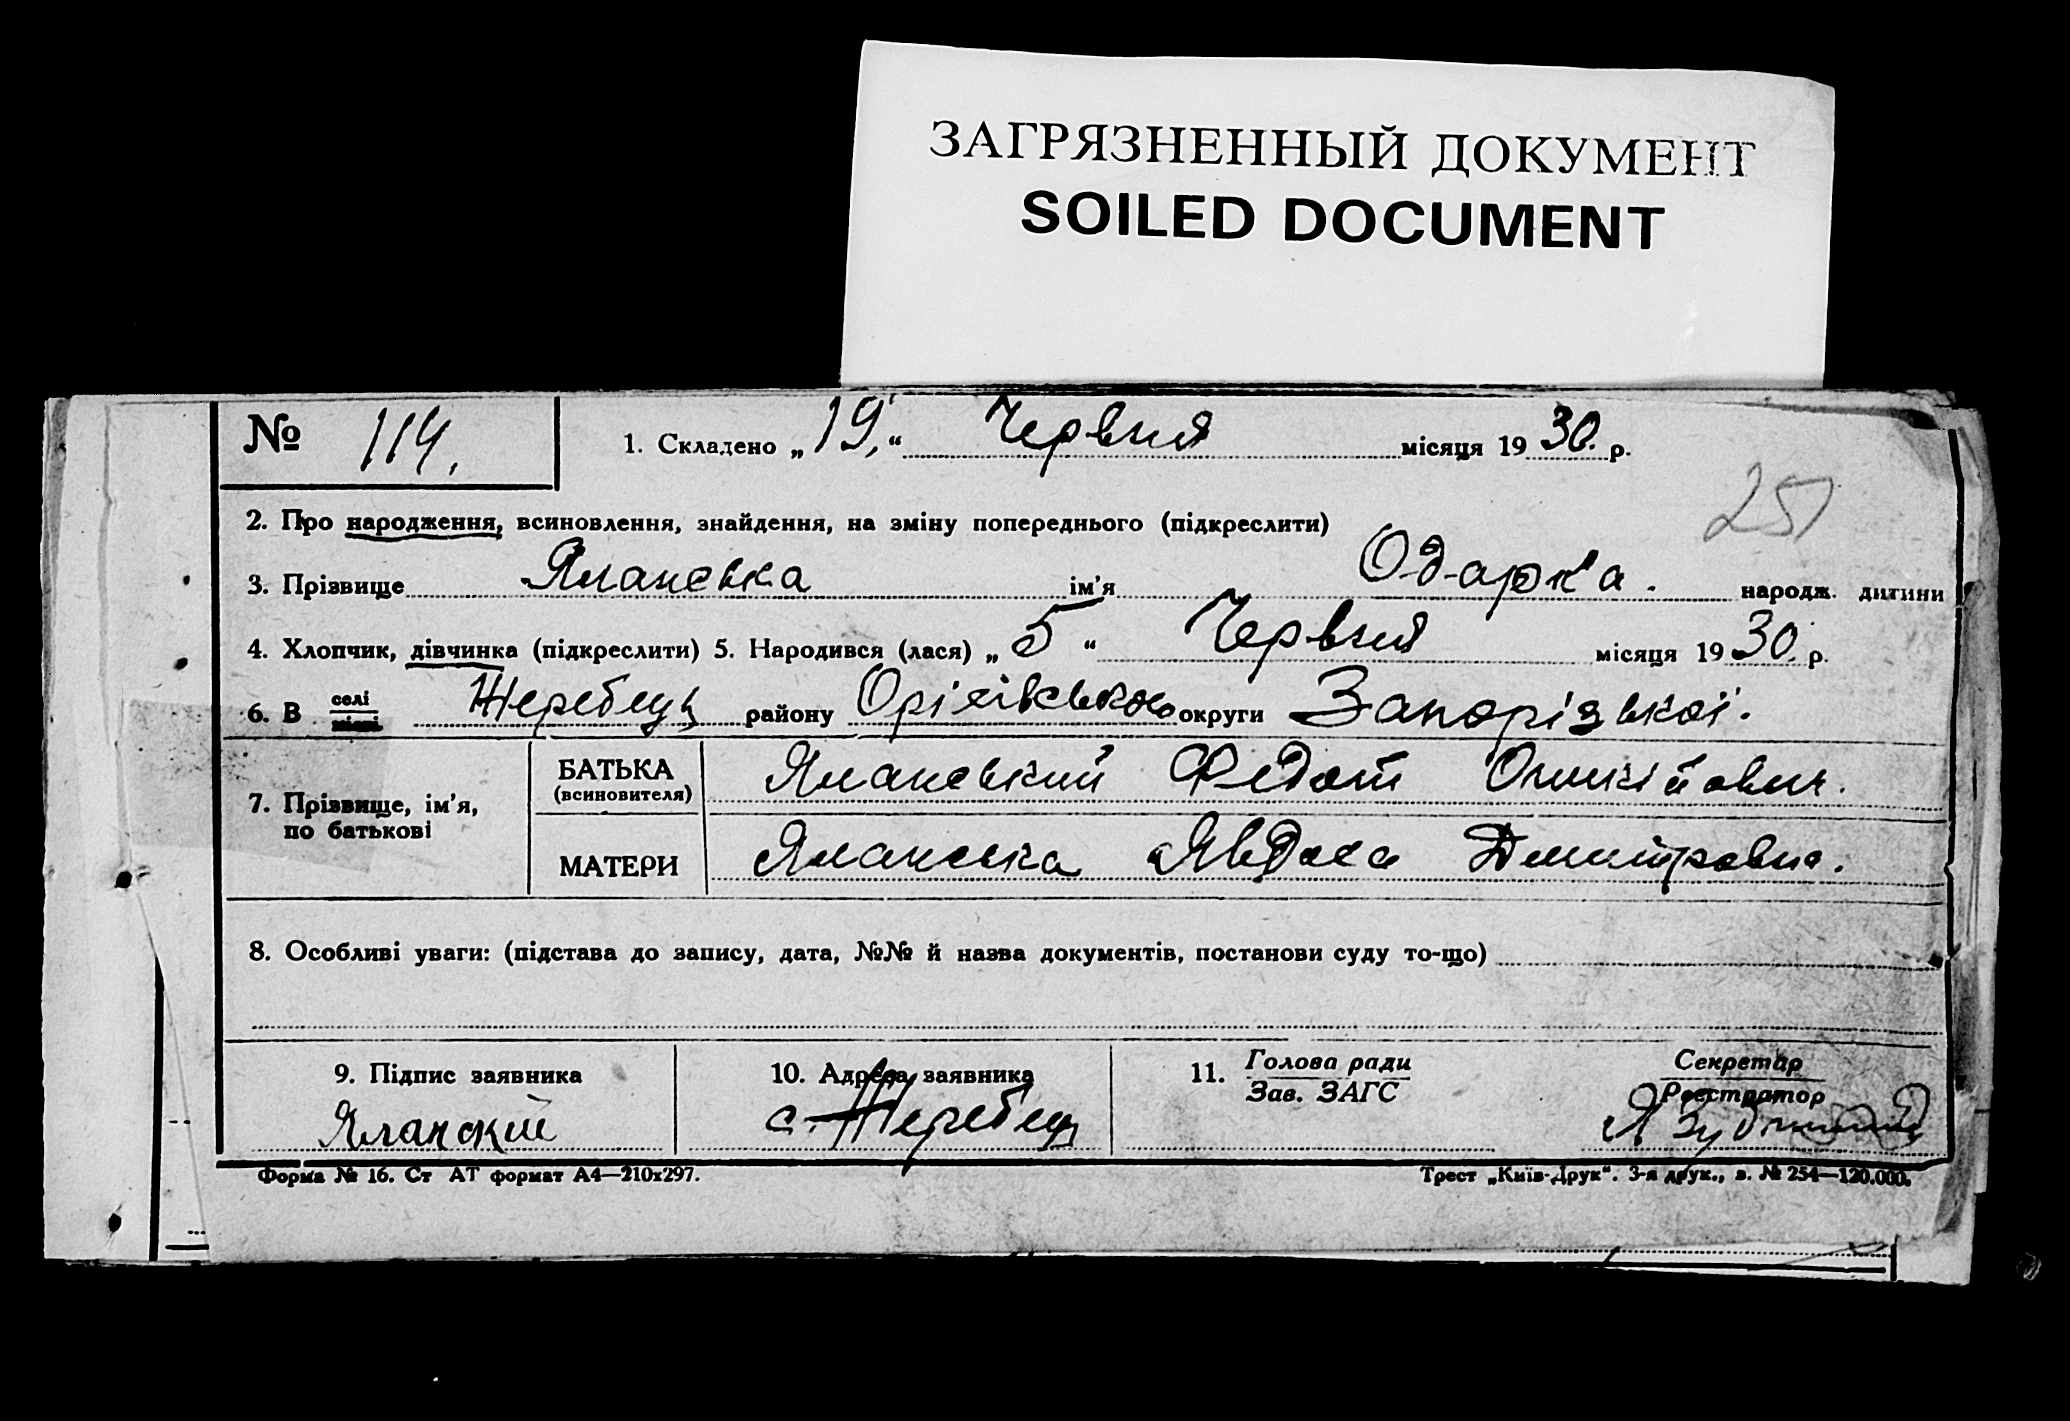 ЗАГРЯЗНЕННЫЙ ДОКУМЕНТ
SOILED DOCUMENT
№ 114. 1. Складено „19.“ Червня місяця 1930. р.
251
2. Про народження, всиновлення, знайдення, на зміну попереднього (підкреслити)
3. Прізвище Яланська ім’я Одарка. народж. дитини
4. Хлопчик, дівчинка (підкреслити) 5. Народився (лася) „5“ Червня місяця 1930. р.
6. В селі Жеребець району Оріхівського округи Запорізької.
7. Прізвище, ім’я, по батькові
БАТЬКА (всиновителя) Яланський Федот
МАТЕРИ Яланська Явдоха Дмитровна.
8. Особливі уваги: (підстава до запису, дата, №№ й назва документів, постанови суду то-що)
9. Підпис заявника 10. Адреса заявника 11. Голова ради Секретар
Зав. ЗАГС Реєстратор
Яланский с. Жеребець
Форма № 16. Ст АТ формат А4—210х297. Трест „Київ-Друк“. 3-я друк., з. № 254—120.000.